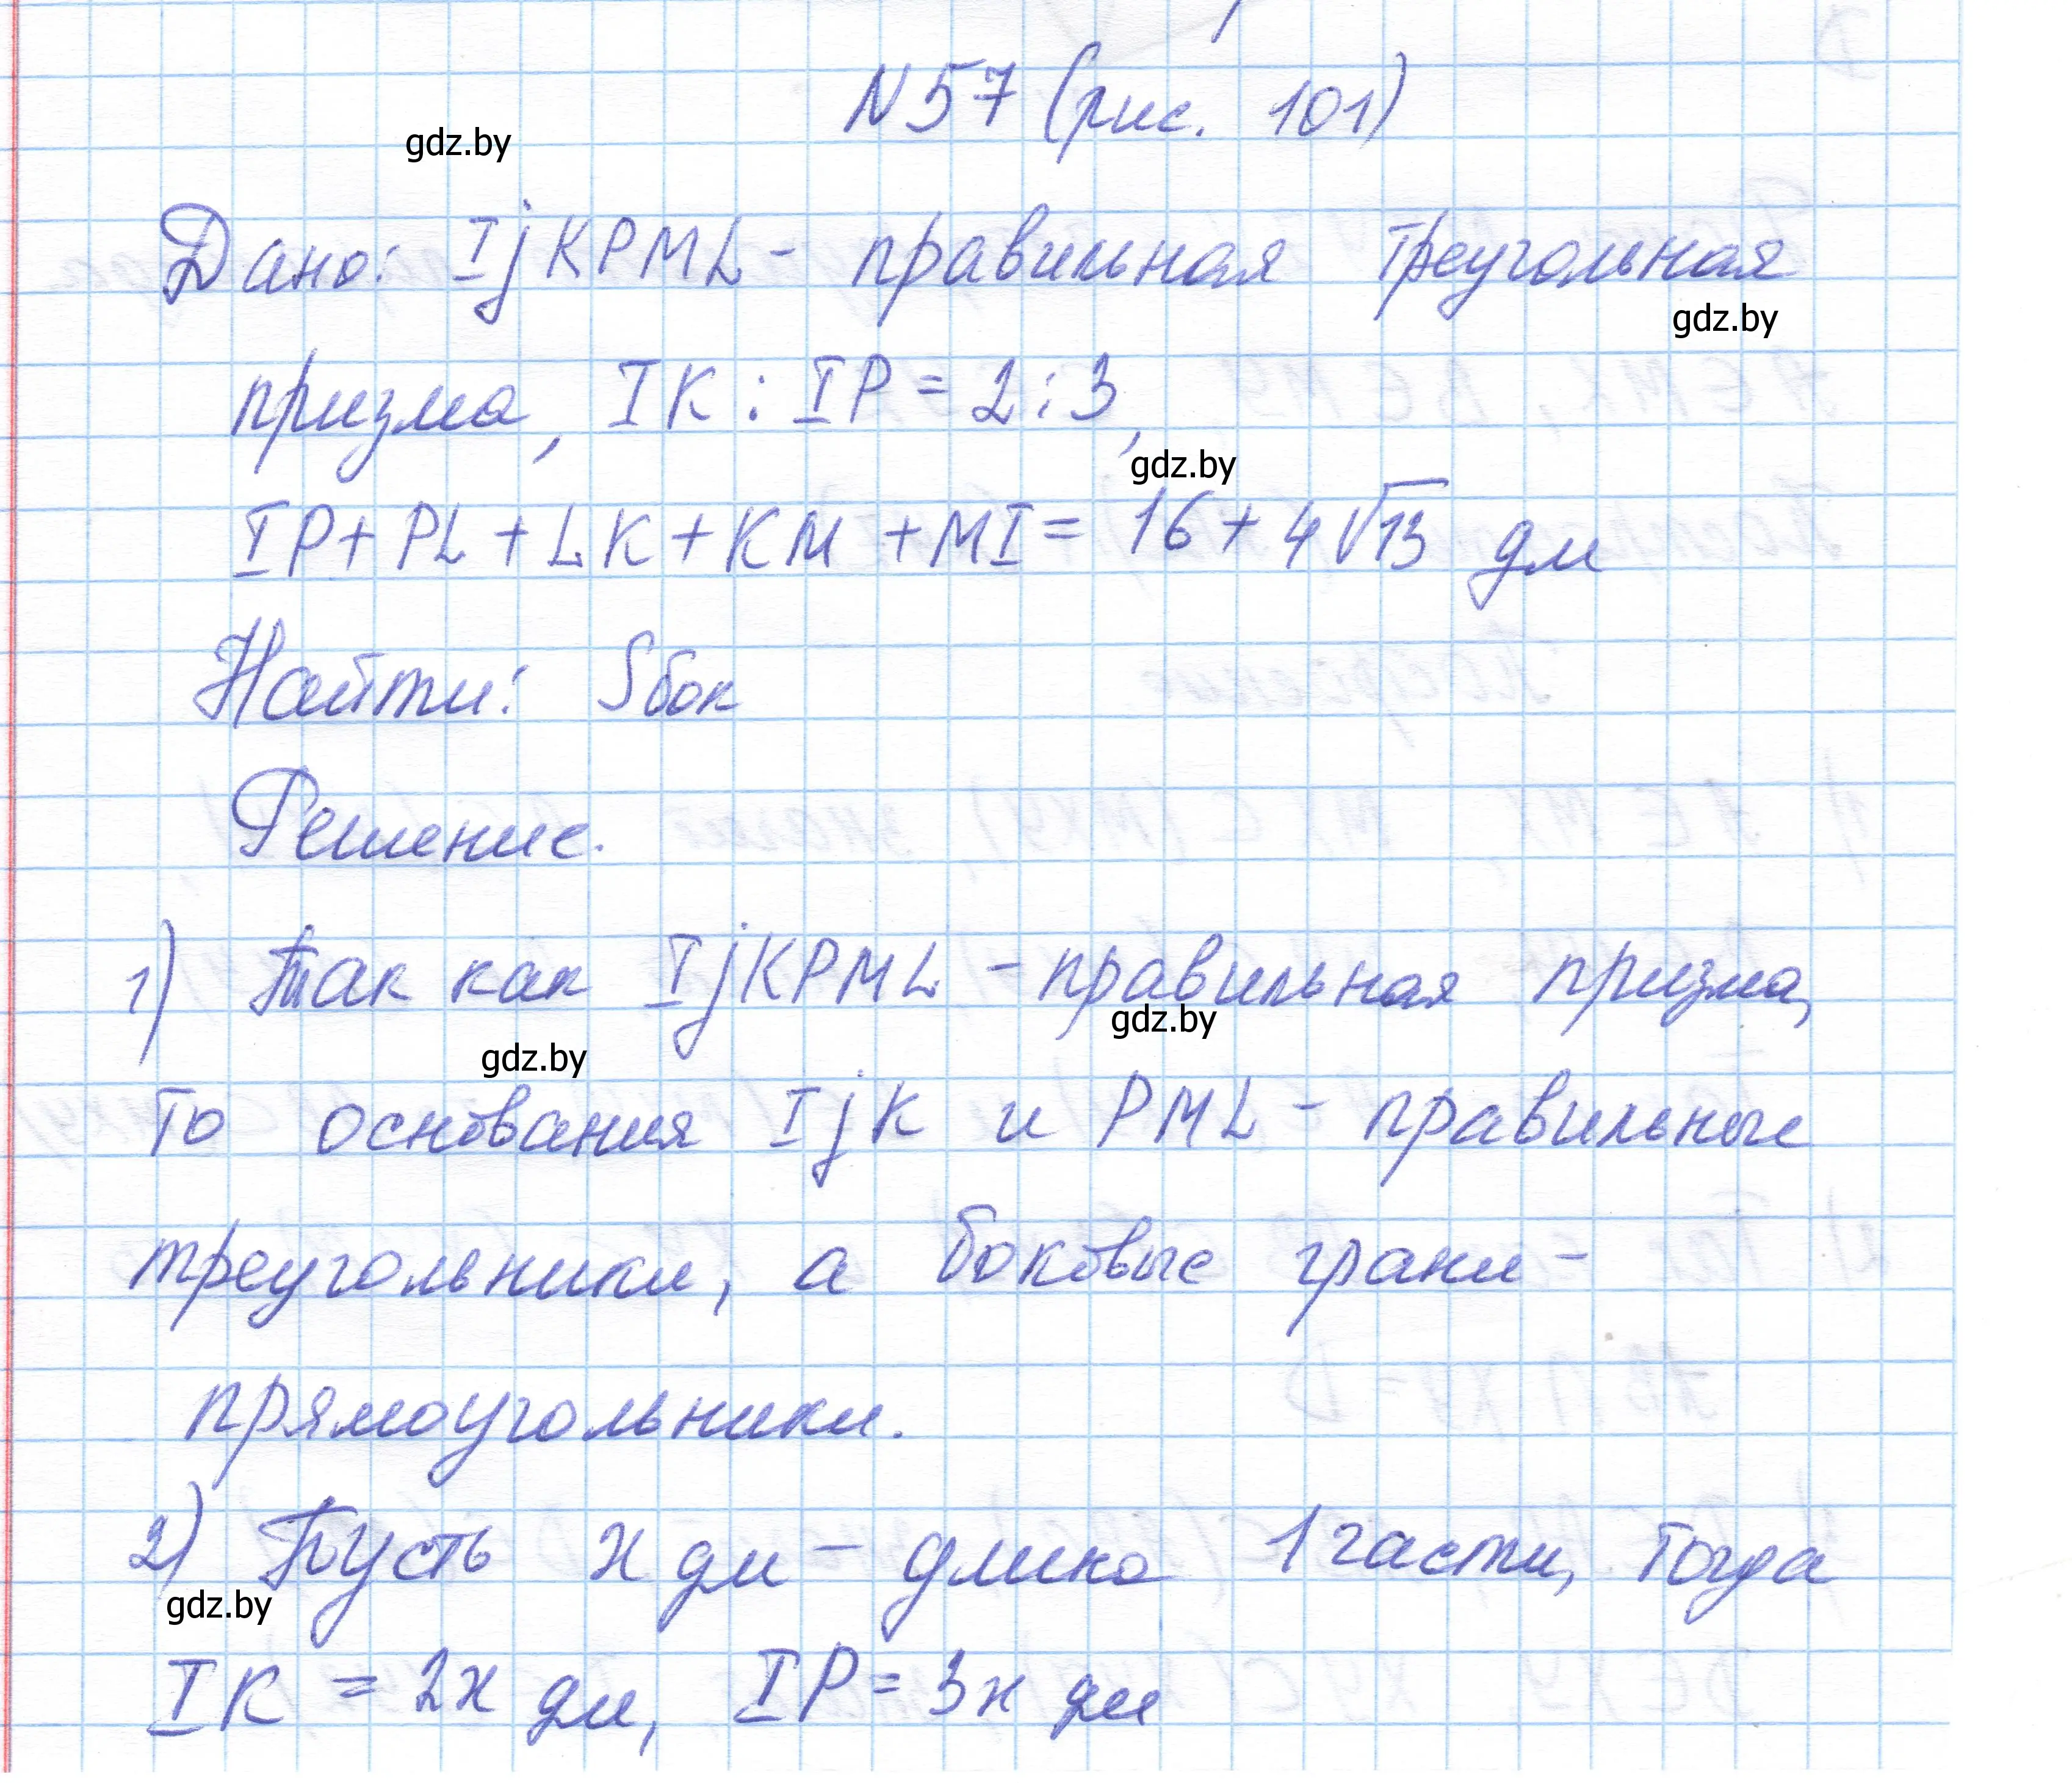 N57 (рис. 101)
gdz.by
Дано: IjKPML - правильная треугольная
gdz.by
призма, IK : IP = 2:3,
gdz.by
IP + PL + LK + KM + MI = 16 + 4√13 дм
Найти: Sбок
Решение.
1) Так как IjKPML - правильная призма,
gdz.by
gdz.by
то основания IjK и PML - правильные
треугольники, а боковые грани -
прямоугольники.
2) Пусть x дм - длина 1 части, тогда
gdz.by
IK = 2x дм, IP = 3x дм